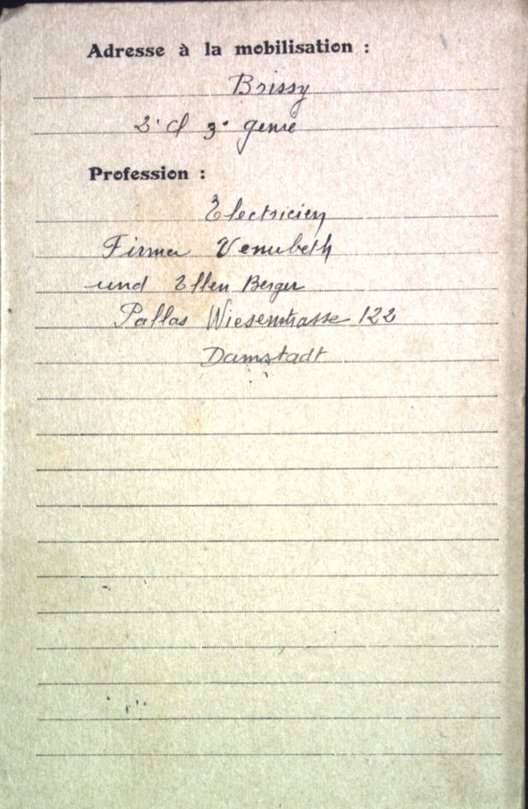 Adresse à la mobilisation :
Brissy
2. cl 3. génie
Profession :
Electricien
Firma Venuleth
und Ellenberger
Pallas Wiesenstrasse 122
Damstadt